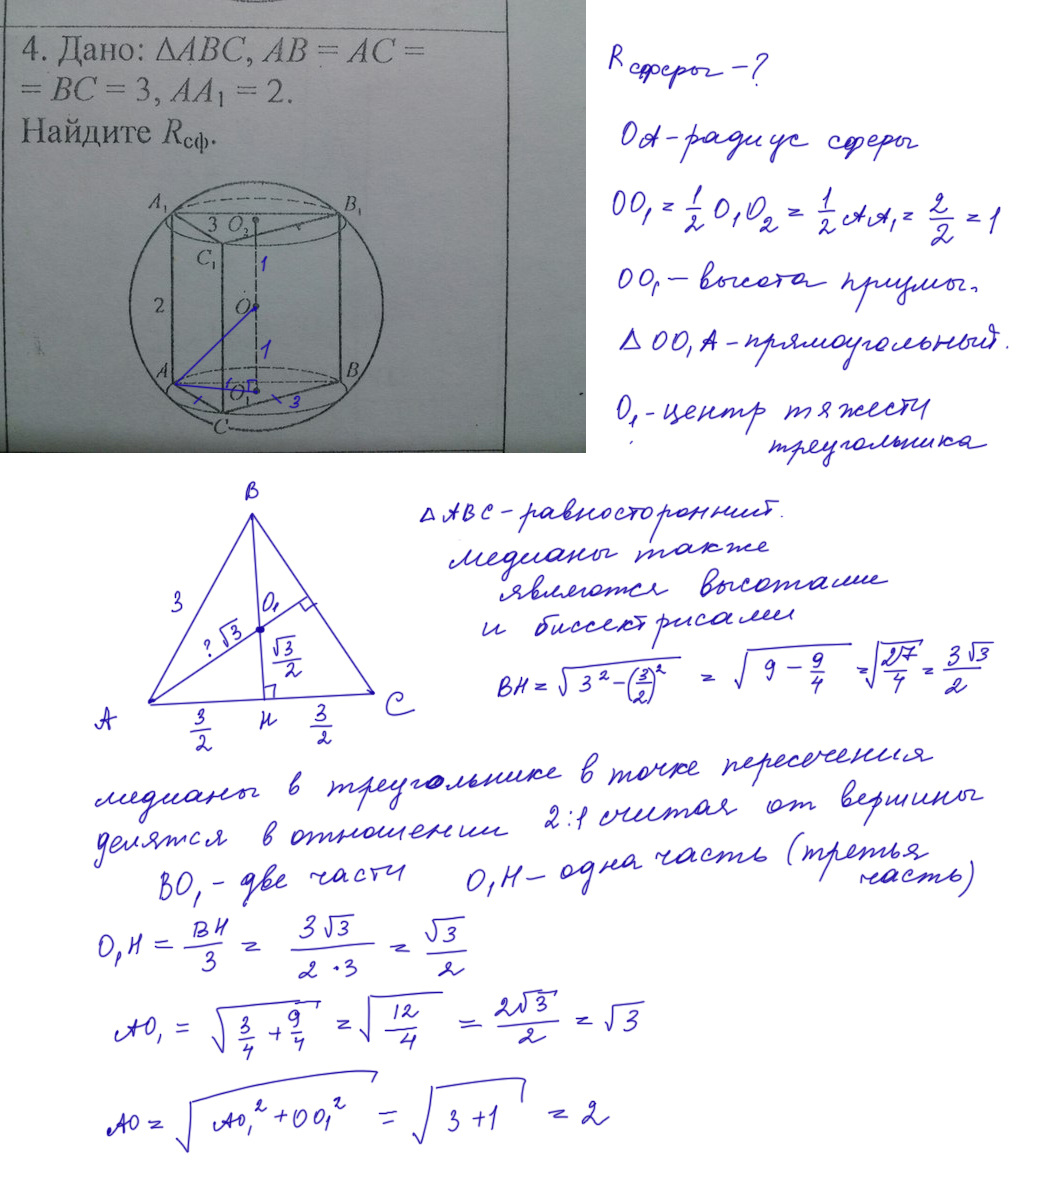 4. Дано: ΔABC, AB = AC =
= BC = 3, AA₁ = 2.
Найдите Rсф.
A₁
B₁
3
O₂
C₁
1
2
O
1
A
B
O₁
3
C
R сферы – ?
OA – радиус сферы
OO₁ = 1/2 O₁O₂ = 1/2 AA₁ = 2/2 = 1
OO₁ – высота призмы.
Δ OO₁A – прямоугольный.
O₁ – центр тяжести
треугольника
B
3
O₁
? √3
√3/2
A
3/2
H
3/2
C
Δ ABC – равносторонний.
медианы также
являются высотами
и биссектрисами
BH = √(3² – (3/2)²) = √(9 – 9/4) = √(27/4) = 3√3/2
медианы в треугольнике в точке пересечения
делятся в отношении 2:1 считая от вершины
BO₁ – две части
O₁H – одна часть (третья
часть)
O₁H = BH/3 = 3√3/(2·3) = √3/2
AO₁ = √(3/4 + 9/4) = √(12/4) = 2√3/2 = √3
AO = √(AO₁² + OO₁²) = √(3+1) = 2